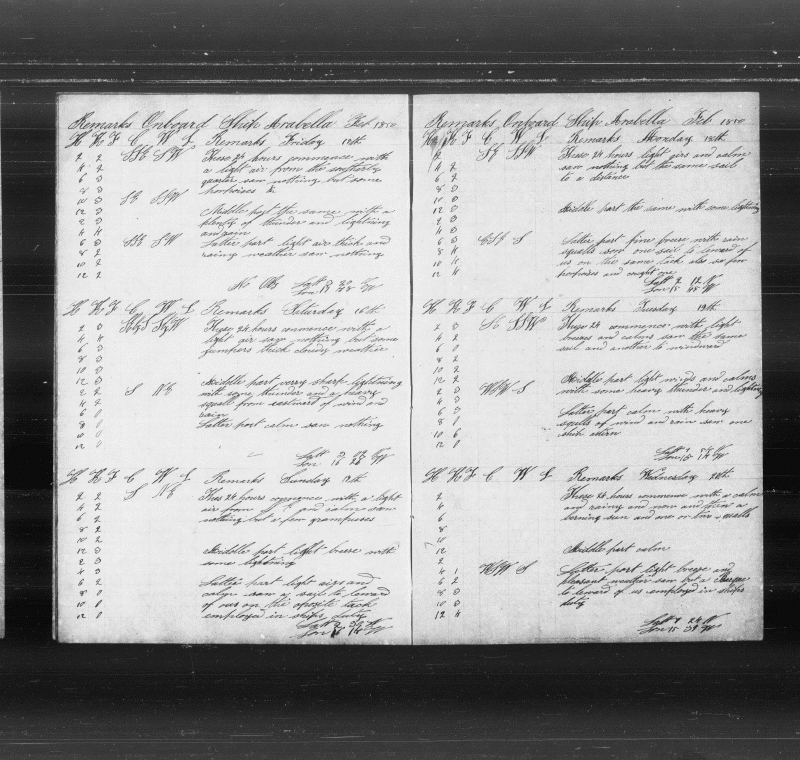 Remarks Onboard Ship Arabella Feb 1850
H K F C W L Remarks Friday 15th
2 2 SSE SW These 24 hours commence with
4 2 a light air from the southerly
6 3 quarter saw nothing but some
8 3 porpoises &c
10 3 SE SSW
12 3 Middle part the same with a
2 3 plenty of thunder and lightning
4 4 and rain
6 3 SSE SW Latter part light air thick and
8 2 rainy weather saw nothing
10 2
12 2
No Obs Latt
Lon
H K F C W L Remarks Saturday 16th
2 3 These 24 hours commence with a
4 4 light air saw nothing but some
6 3 jumpers thick cloudy weather
8 3
10 3
12 3 Middle part very sharp lightning
2 2 S NE with some thunder and a heavy
4 2 squall from eastward of wind and
6 0 rain
8 0 Latter part calm saw nothing
10 0
12 0
Latt
Lon
H K F C W L Remarks Sunday 17th
2 2 S NE Thes 24 hours commence with a light
4 2 air from and calm saw
6 2 nothing but a few grampuses
8 2
10 2
12 3 Middle part light breese with
2 3 some lightning
4 3
6 2 Latter part light airs and
8 0 calm saw a sail to leward
10 0 of us on the oposite tack
12 0 employed in ships duty
Latt
Lon
Remarks Onboard Ship Arabella Feb 1850
H K F C W L Remarks Monday 18th
2 SE SSW These 24 hours light airs and calm
4 2 saw nothing but the same sail
6 2 to a distance
8 3
10 3
12 3 Middle part the same with some lightning
2 3
4 3
6 5 ESE S Latter part fine breese with rain
8 4 squalls saw one sail to leward of
10 4 us on the same tack also so few
12 4 porpoises and caught one
Latt 2 12 N
Lon 15 45 W
H K F C W L Remarks Tuesday 19th
2 3 These 24 commence with light
4 4 breeses and calms saw the same
6 2 sail and another to windward
8 2
10 2
12 2 Middle part light winds and calms
2 3 with some heavy thunder and lightning
4 3
6 3 Latter part calm with heavy
8 0 squlls of wind and rain saw one
10 6 ship astern
12 0
Latt
Lon
H K F C W L Remarks Wednesday 20th
2 2 These 24 hours commence with a calm
4 2 and rainy and now and then a
6 burning sun and one or two squalls
8
10
12 Middle part calm
2
4 1 S Latter part light breese and
6 2 pleasant weather saw but a Barque
8 0 to leward of us employed in ships
10 3 duty
12 4
Latt 24 N
Lon 15 39 W